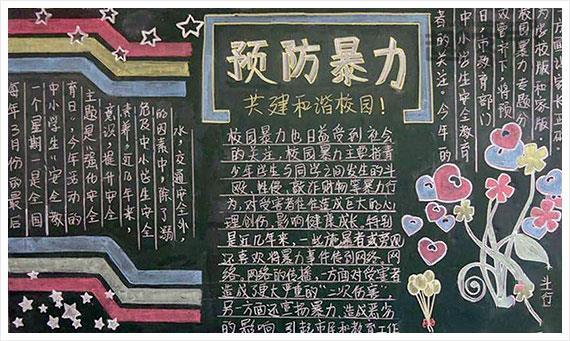 每年3月份的最后
一个星期一是全国
中小学生"安全教
育日",今年活动的
主题是"强化安全
意识,提升安全
素养。近几年来,
危及中小学生安全
的因素中,除了溺
水,交通安全外,
预防暴力
共建和谐校园!
校园暴力也日益受到社会
的关注。校园暴力主要指青
少年学生与同学之间发生的斗
殴、性侵、敲诈财物等暴力行
为,对受害者往往造成巨大的心
理创伤,影响健康成长。特别
是近几年来,一些施暴者或旁观
还喜欢将暴力事件传到网络。网
络,网络的传播,一方面对受害者
造成了更大更重的"二次伤害",
另一方面还宣扬暴力、造成恶劣
的影响,引起市民和教育工作
者的关注。今年的
中小学生安全教育
日,市教育部门
双管齐下,将预
校园暴力专题分
为学校版和家版